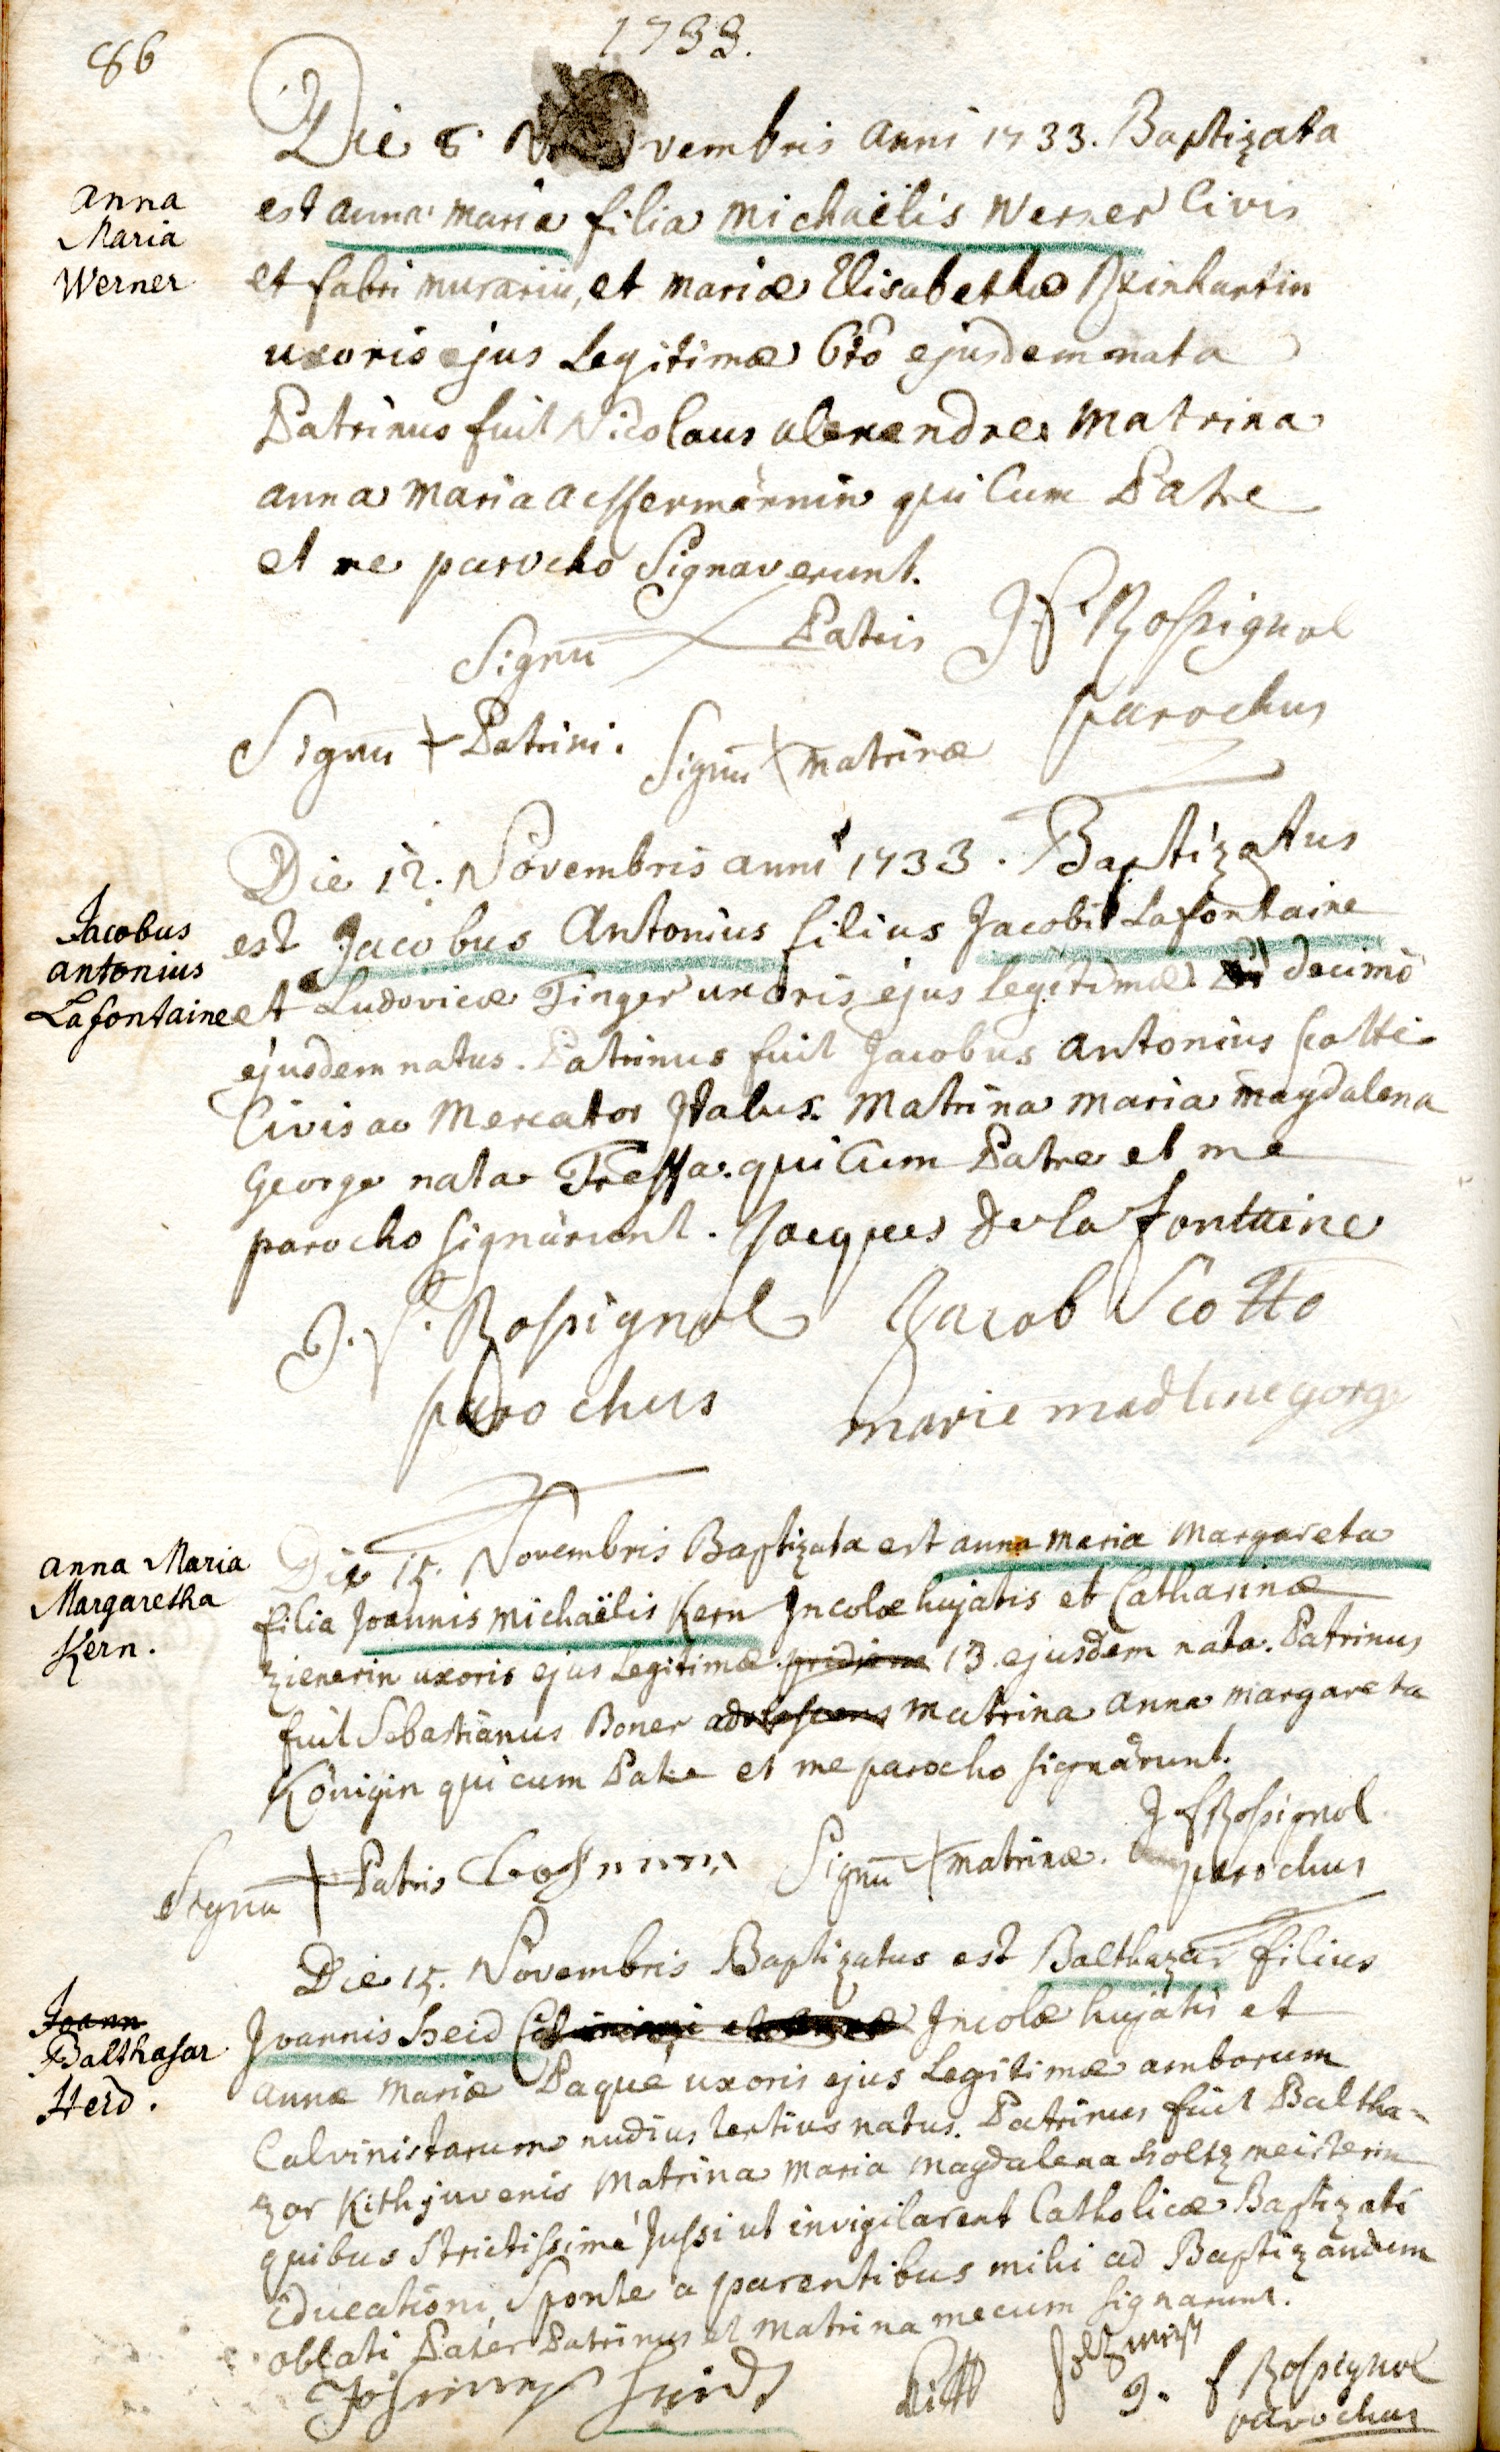 86
1733.
Die 8. Novembris anni 1733. Baptizata
Anna
Maria
Werner
est anna maria filia michaëlis Werner Civis
et fabri murarii, et mariæ Elisabethæ Reinhartin
uxoris ejus Legitimæ 6tô ejusdem nata
Patrinus fuit Nicolaus alexendre matrina
anna maria ackermännin qui Cum Patre
et me parocho Signaverunt.
Signū Patris J f Rossignol
parochus
Signū + Patrini. Signū + matrinæ
Die 12. Novembris anni 1733. Baptizatus
Jacobus
antonius
Lafontaine
est Jacobus Antonius filius Jacobi Lafontaine
et Ludovicæ Finger uxoris ejus legitimæ decimô
ejusdem natus. Patrinus fuit Jacobus antonius scotti
Civis ac Mercator Italus. Matrina maria magdalena
George nata qui Cum Patre et me
parocho signârunt. Jacques de la fontaine
J. f. Rossignol Jacob Scotto
parochus marie madlene gorge
anna Maria
Margaretha
Kern.
Die 15. Novembris Baptizata est anna maria Margareta
filia Joannis michaëlis Kern Incolæ hujatis et Catharinæ
zienerin uxoris ejus Legitimæ. pridiane 13. ejusdem nata. Patrinus
fuit Sebastianus Boner adolescens matrina anna margareta
Königin qui cum Patre et me parocho signârunt.
Signū + Patris Signū + matrinæ. J f Rossignol
parochus
Die 15. Novembris Baptizatus est Balthazar filius
Joann
Balthasar
Heid.
Joannis heid Incolæ hujatis et
annæ Mariæ Paqué uxoris ejus Legitimæ amborum
Calvinistarum nudius tertius natus. Patrinus fuit Baltha-
zar Kith juvenis Matrina maria magdalena holtzmeisterin
quibus strictissimè jussi ut invigilarent Catholicæ Baptizati
Educationi, sponte a parentibus mihi ad Baptizandum
oblati Pater Patrinus et Matrina mecum signarunt.
J. f Rossignol
parochus